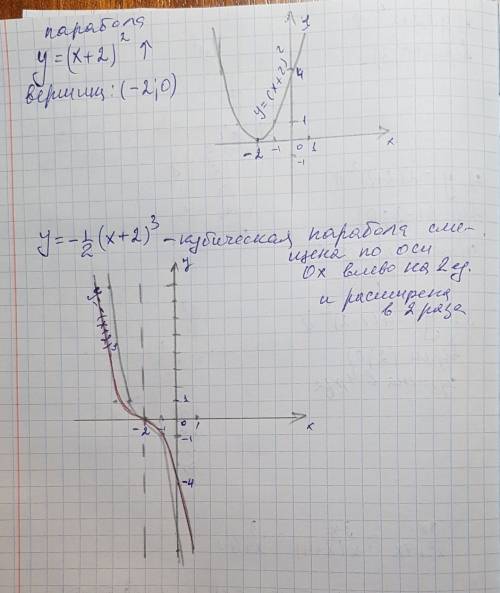 парабола
y = (x+2)² ↑
вершин: (-2; 0)
y
y=(x+2)²
4
1
-2 -1 0 1 x
-1
y = -1/2 (x+2)³ - кубическая парабола сме-
щена по оси
Ох влево на 2 ед.
и расширена
в 2 раза
y
1
-2 -1 0 1 x
-1
-4